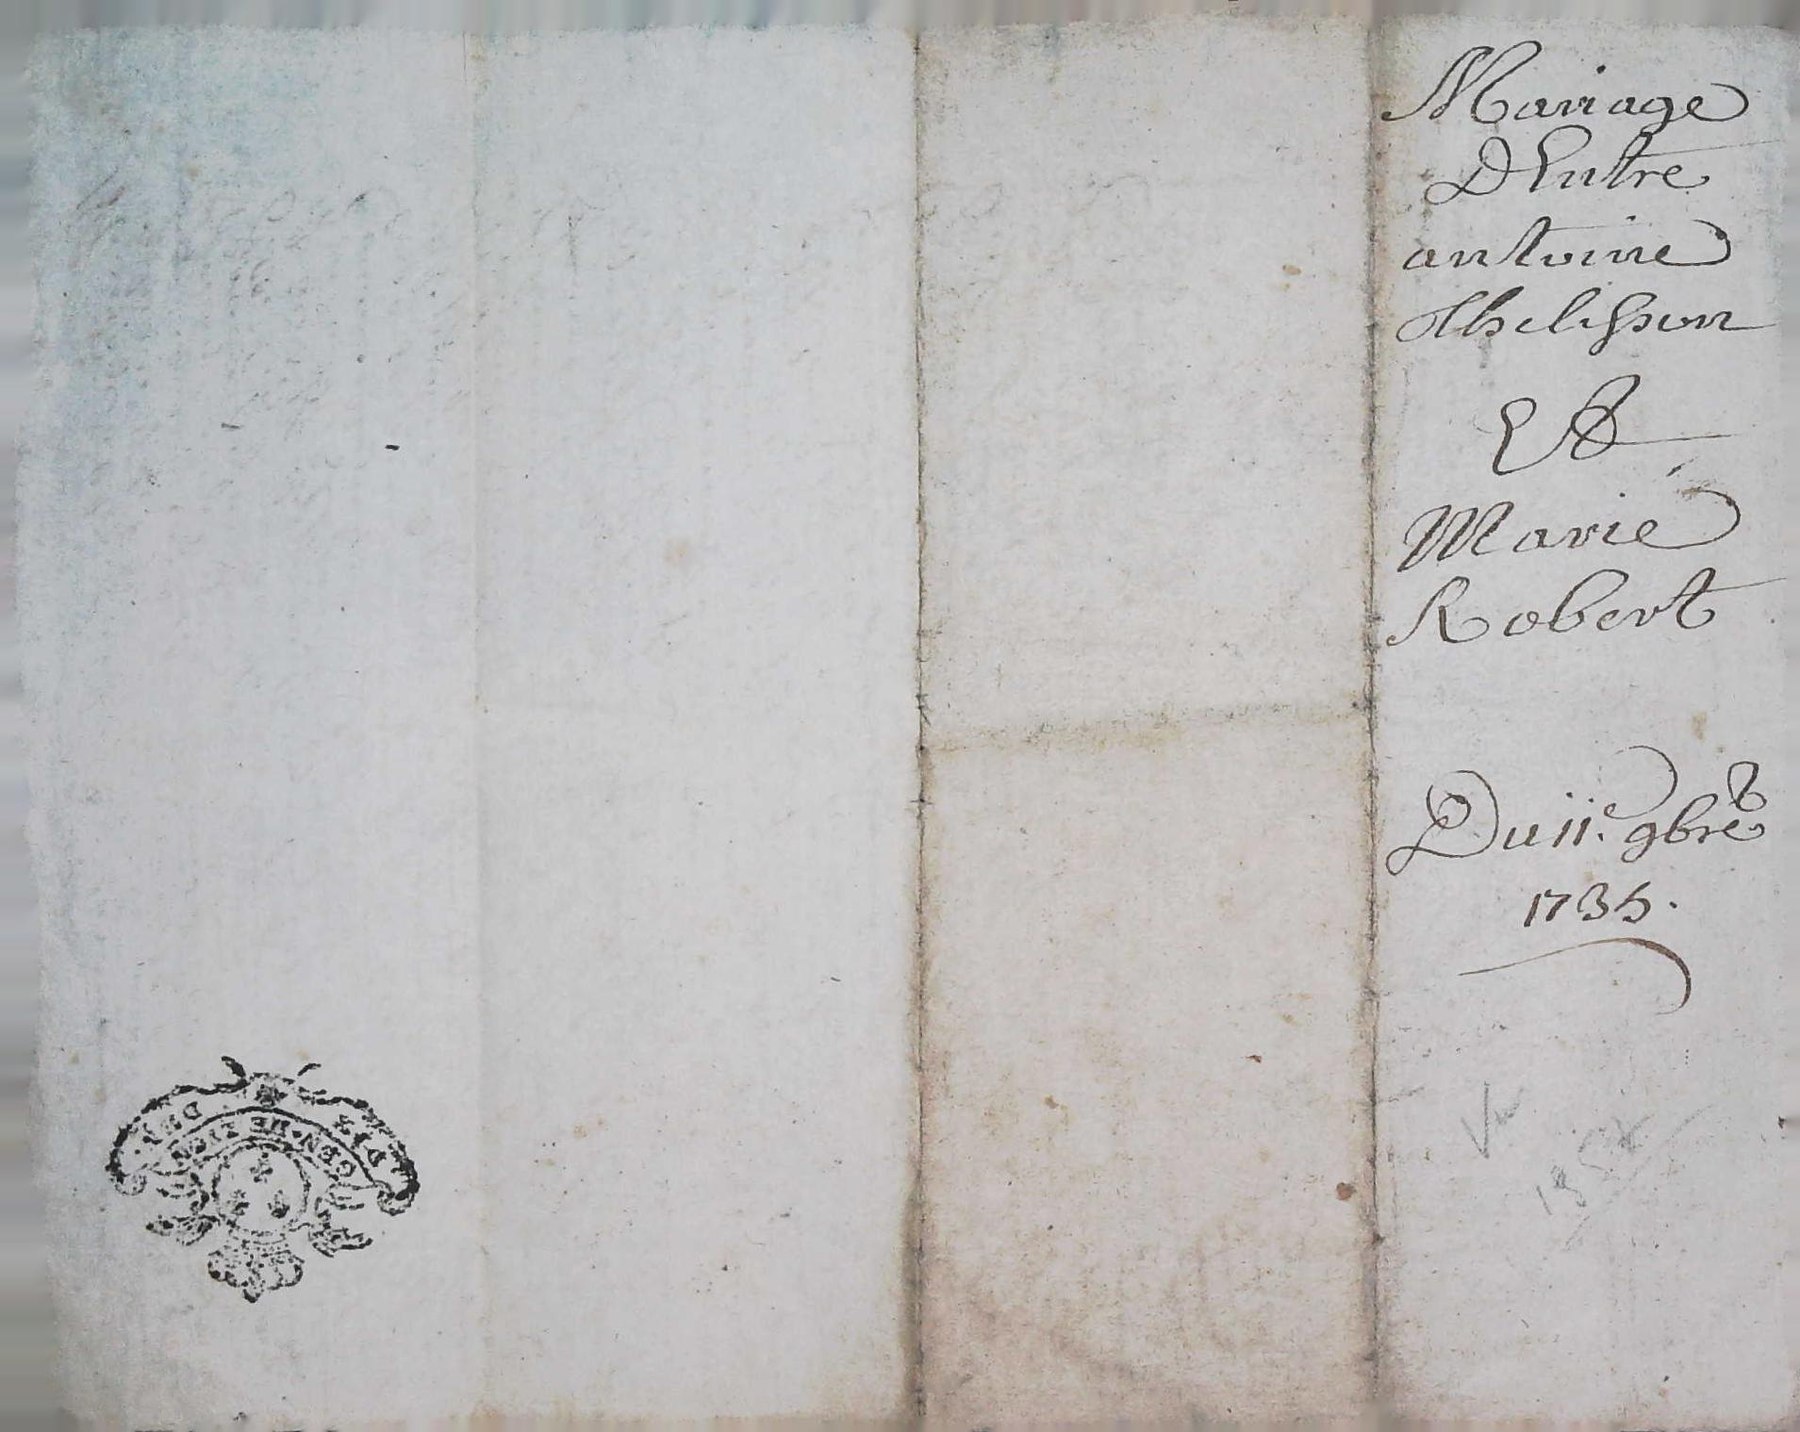 Mariage
D'Entre
antoine
Thelisson
Et
Marie
Robert
Du 11.e 9bre
1735.
GEN. DE RIOM